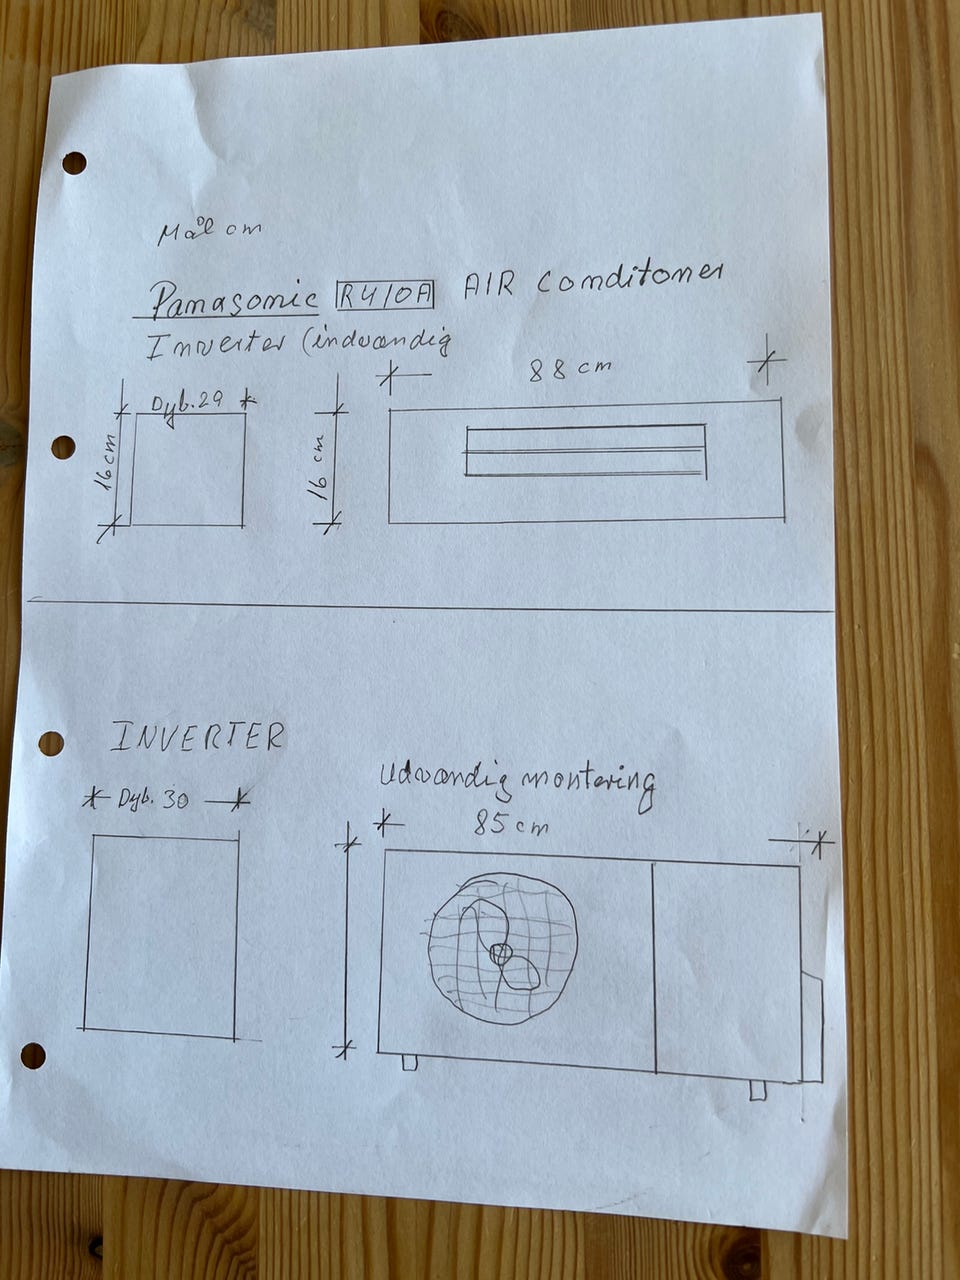 Mål cm
Panasonic R410A AIR Conditoner
Inverter (indvændig
88 cm
Dyb. 29
16 cm
16 cm
INVERTER
Udvændig montering
Dyb. 30
85 cm